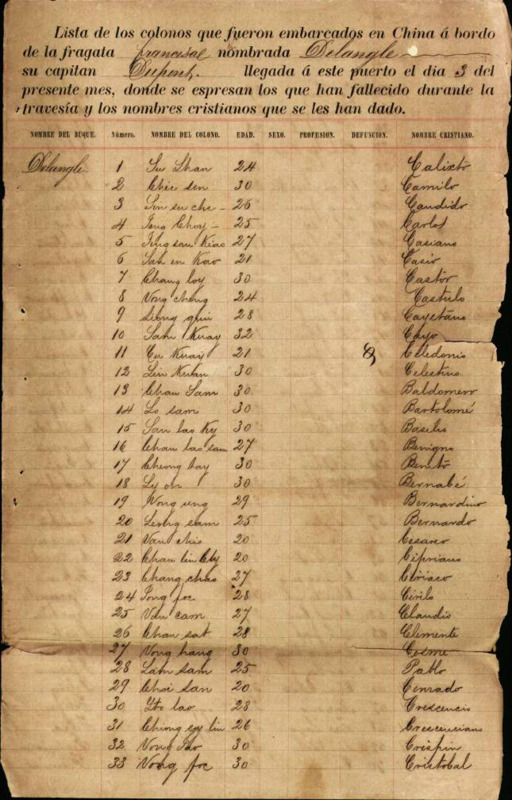 Lista de los colonos que fueron embarcados en China á bordo
de la fragata francesa nombrada Delangle
su capitan Dupont. llegada á este puerto el dia 3 del
presente mes, donde se espresan los que han fallecido durante la
travesía y los nombres cristianos que se les han dado.
NOMBRE DEL BUQUE. Número. NOMBRE DEL COLONO. EDAD. SEXO. PROFESION. DEFUNCION. NOMBRE CRISTIANO.
Delangle 1 24 Calixto
2 Chie sen 30 Camilo
3 26 Candido
4 25 Carlos
5 27 Casiano
6 21 Casio
7 Chang loy 30 Castor
8 Vong cheng 24 Castulo
9 Leong qui 28 Cayetano
10 32 Cayo
11 21 Celedonio
12 30 Celestino
13 Chan Sam 30 Baldomero
14 Lo sam 30 Bartolomé
15 San lao Ky 30 Basilio
16 Chan lao san 27 Benigno
17 Cheong bay 30 Benito
18 Ly on 30 Bernabé
19 Wong ung 29 Bernardino
20 Leong sam 25 Bernardo
21 Van chio 20 Cesareo
22 Cham lin 20 Cipriano
23 Chang chao 27 Ciriaco
24 Tong foc 28 Cirilo
25 Van cam 27 Claudio
26 Chan sat 28 Clemente
27 Vong hang 30 Cosme
28 Lam sam 25 Pablo
29 Choi san 20 Conrado
30 lao 28 Crescencio
31 Cheong lin 26 Crescenciano
32 Vong 30 Crispin
33 Vong foc 30 Cristobal